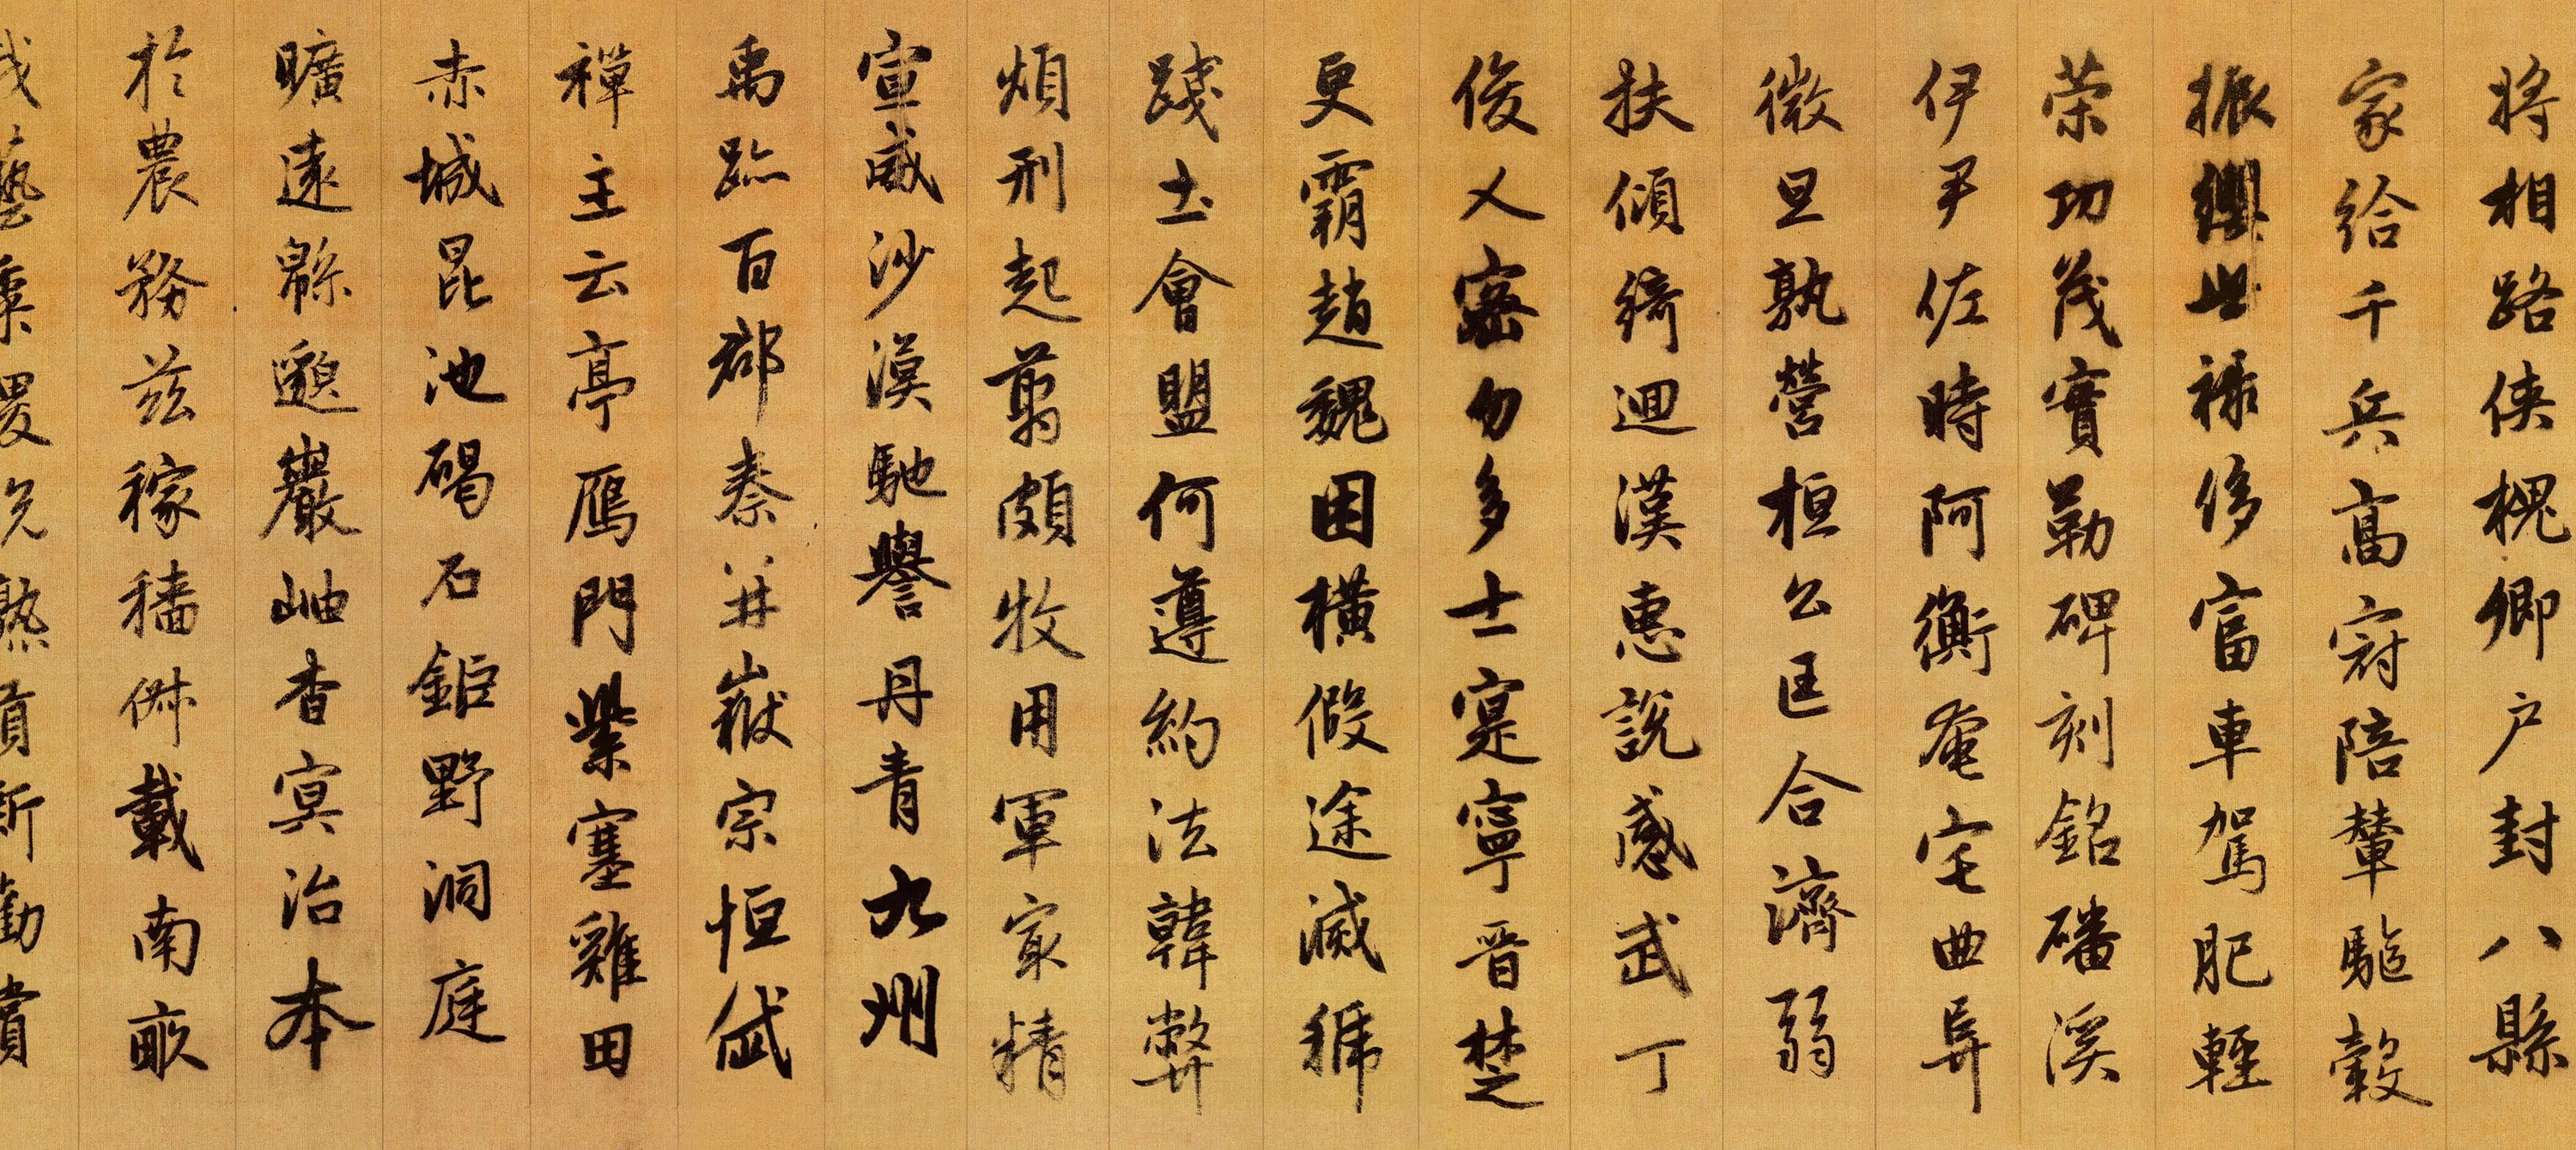 將相路俠槐卿户封八縣
家給千兵高冠陪輦驅轂
振纓世祿侈富車駕肥輕
榮功茂實勒碑刻銘磻溪
伊尹佐時阿衡奄宅曲阜
微旦孰營桓公匡合濟弱
扶傾綺迴漢惠說感武丁
俊乂密勿多士寔寧晉楚
更霸趙魏困橫假途滅虢
踐土會盟何遵約法韓弊
煩刑起翦頗牧用軍最精
宣威沙漠馳譽丹青九州
禹跡百郡秦并嶽宗恒岱
禪主云亭鴈門紫塞雞田
赤城昆池碣石鉅野洞庭
曠遠緜邈巖岫杳冥治本
於農務茲稼穡俶載南畝
我藝黍稷稅熟貢新勸賞